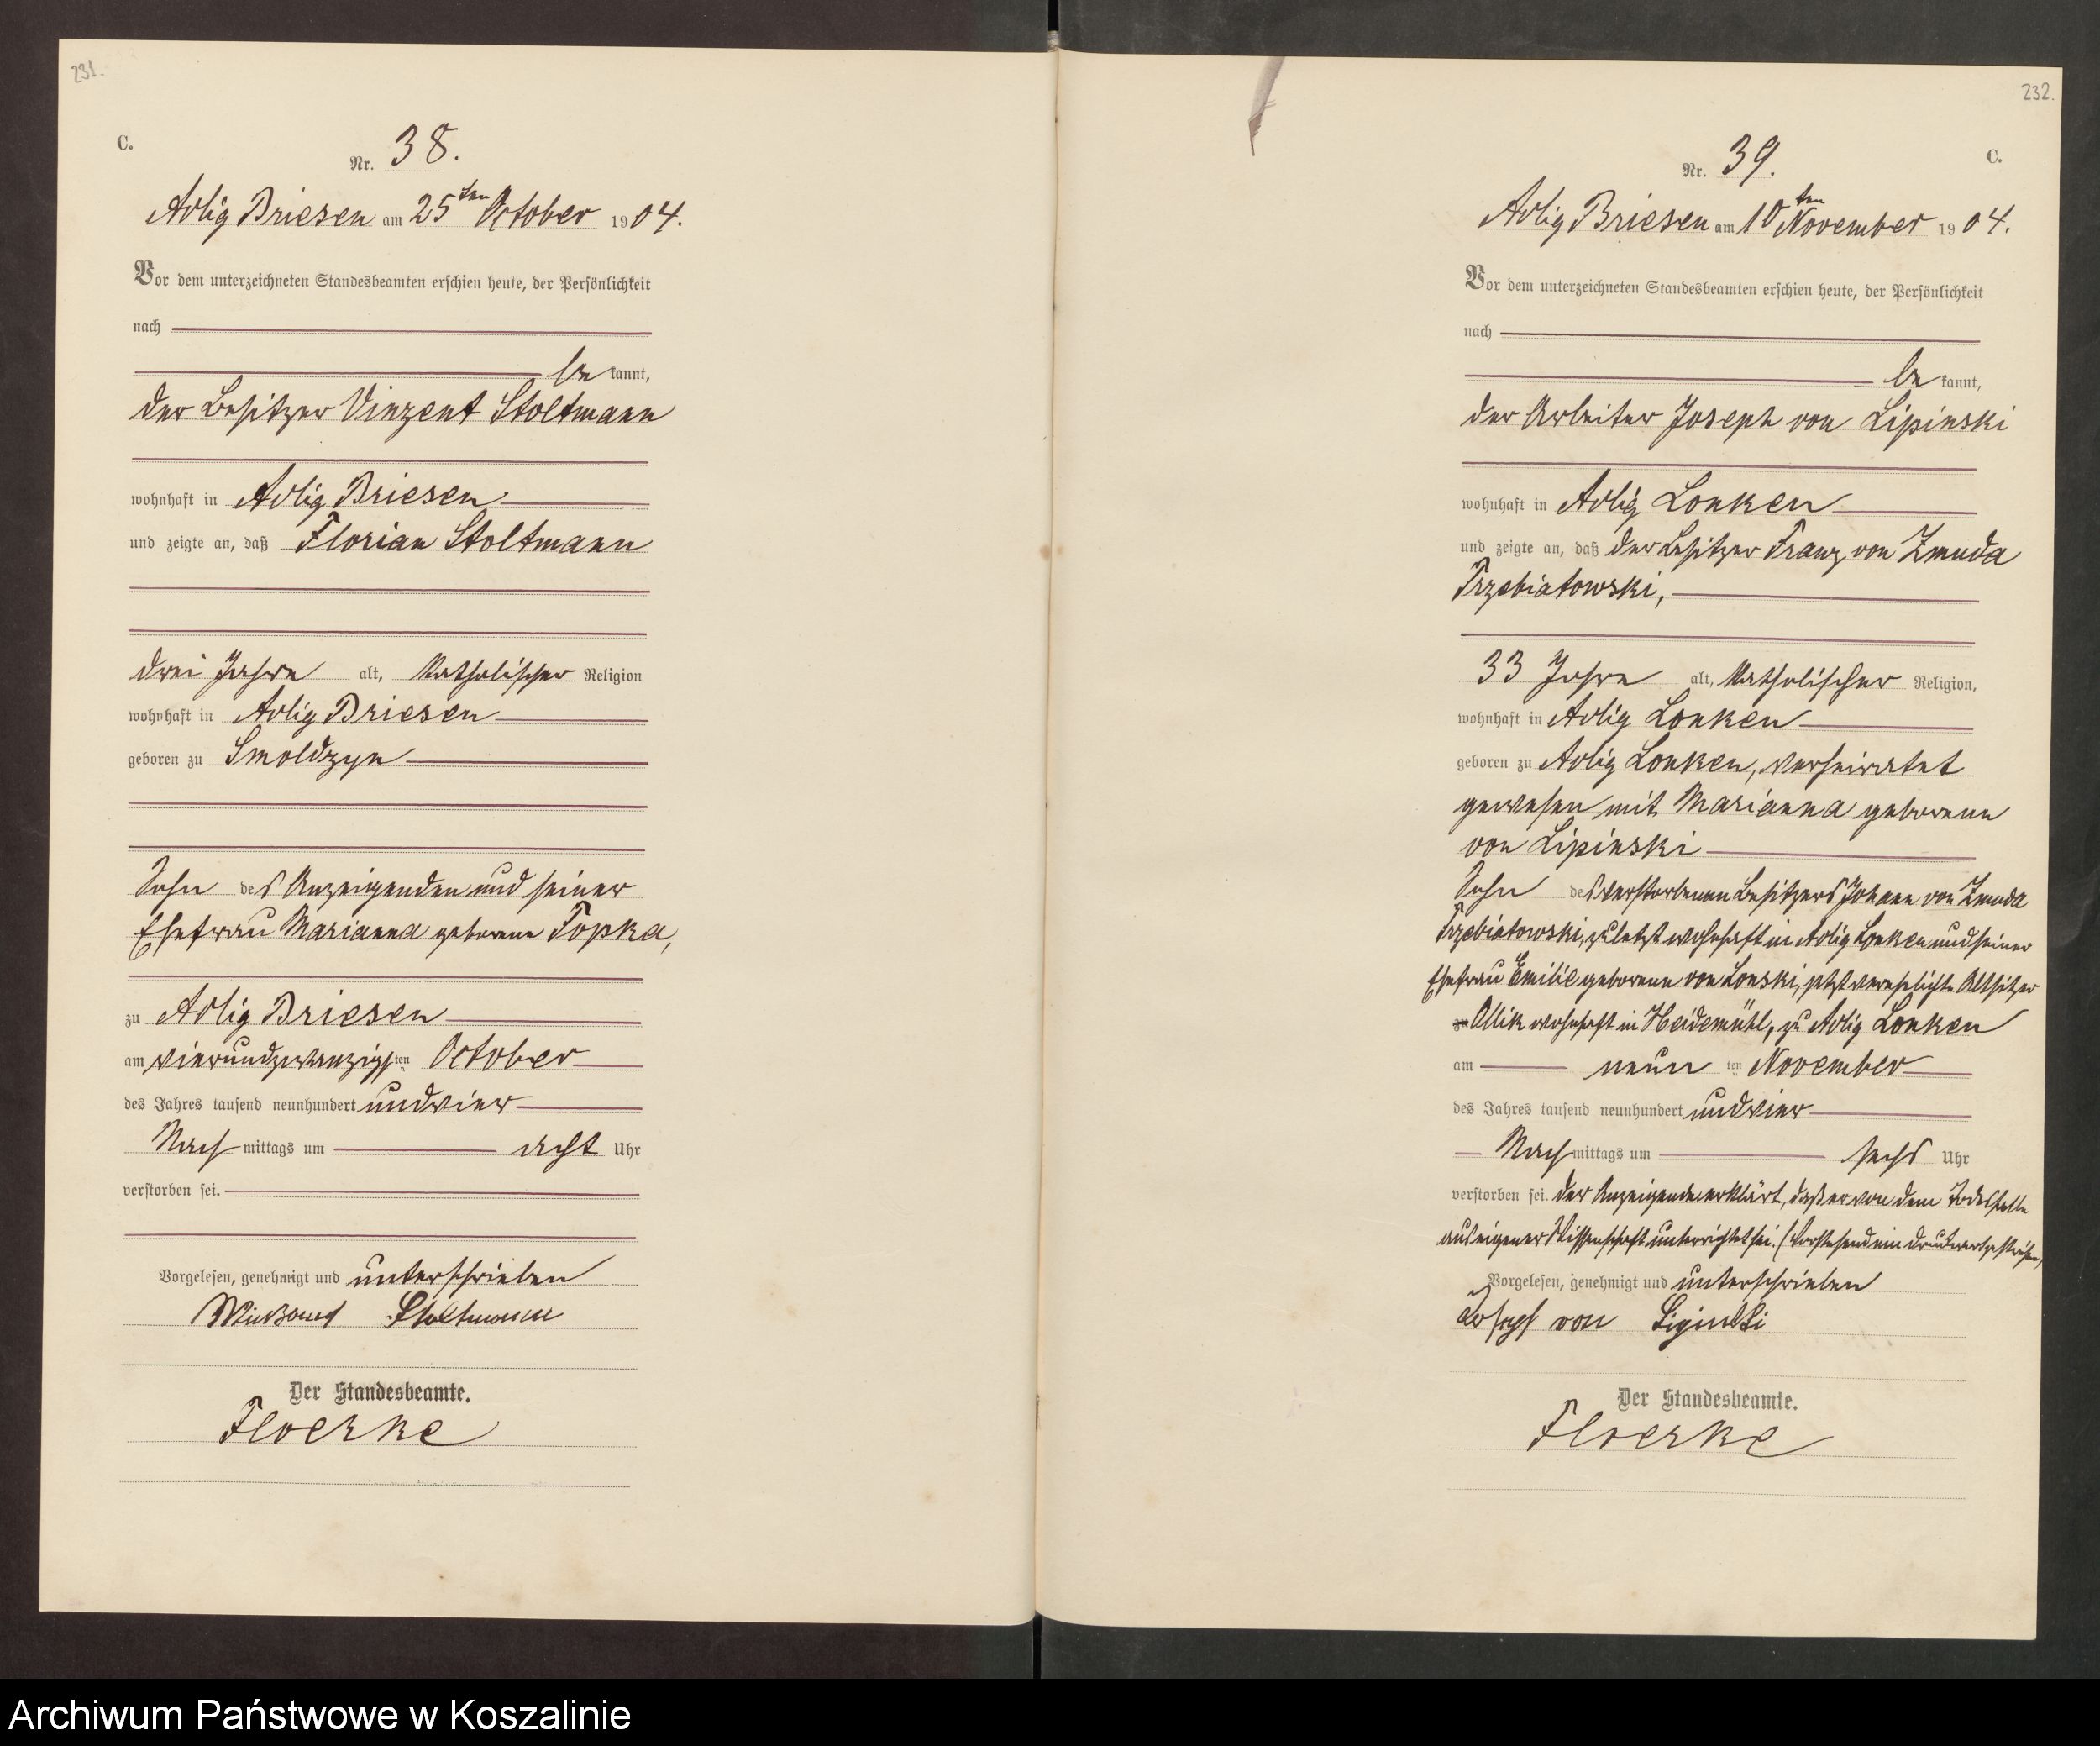 231.
C.
Nr. 38.
Adlig Briesen am 25ten October 1904.
Vor dem unterzeichneten Standesbeamten erschien heute, der Persönlichkeit
nach
be kannt,
der Besitzer Vinzent Stoltmann
wohnhaft in Adlig Briesen
und zeigte an, daß Florian Stoltmann
drei Jahre alt, katholischer Religion
wohnhaft in Adlig Briesen
geboren zu Smoldzyn
Sohn des Anzeigenden und seiner
Ehefrau Marianna geborene Topka,
zu Adlig Briesen
am vierundzwanzigsten October
des Jahres tausend neunhundert undvier
Nach mittags um acht Uhr
verstorben sei.
Vorgelesen, genehmigt und unterschrieben
Stoltmann
Der Standesbeamte.
Floerke
232.
C.
Nr. 39.
Adlig Briesen am 10ten November 1904.
Vor dem unterzeichneten Standesbeamten erschien heute, der Persönlichkeit
nach
be kannt,
der Arbeiter Joseph von Lipinski
wohnhaft in Adlig Lonken
und zeigte an, daß der Besitzer Franz von Zmuda
Trzebiatowski,
33 Jahre alt, katholischer Religion,
wohnhaft in Adlig Lonken
geboren zu Adlig Lonken, verheiratet
gewesen mit Marianna geborene
von Lipinski
Sohn des verstorbenen Besitzers Johann von Zmuda
Trzebiatowski, zuletzt wohnhaft in Adlig Lonken und seiner
Ehefrau Emilie geborene von Lonski, jetzt verehelichte Altsitzer
zu Ollik wohnhaft in Heidemühl, zu Adlig Lonken
am neun ten November
des Jahres tausend neunhundert undvier
Nach mittags um sechs Uhr
verstorben sei. Der Anzeigende erklärt, daß er von dem Todesfalle
aus eigener Wissenschaft unterrichtet sei. (Vorstehend ein Druckwort gestrichen)
Vorgelesen, genehmigt und unterschrieben
Joseph von Lipinski
Der Standesbeamte.
Floerke
Archiwum Państwowe w Koszalinie